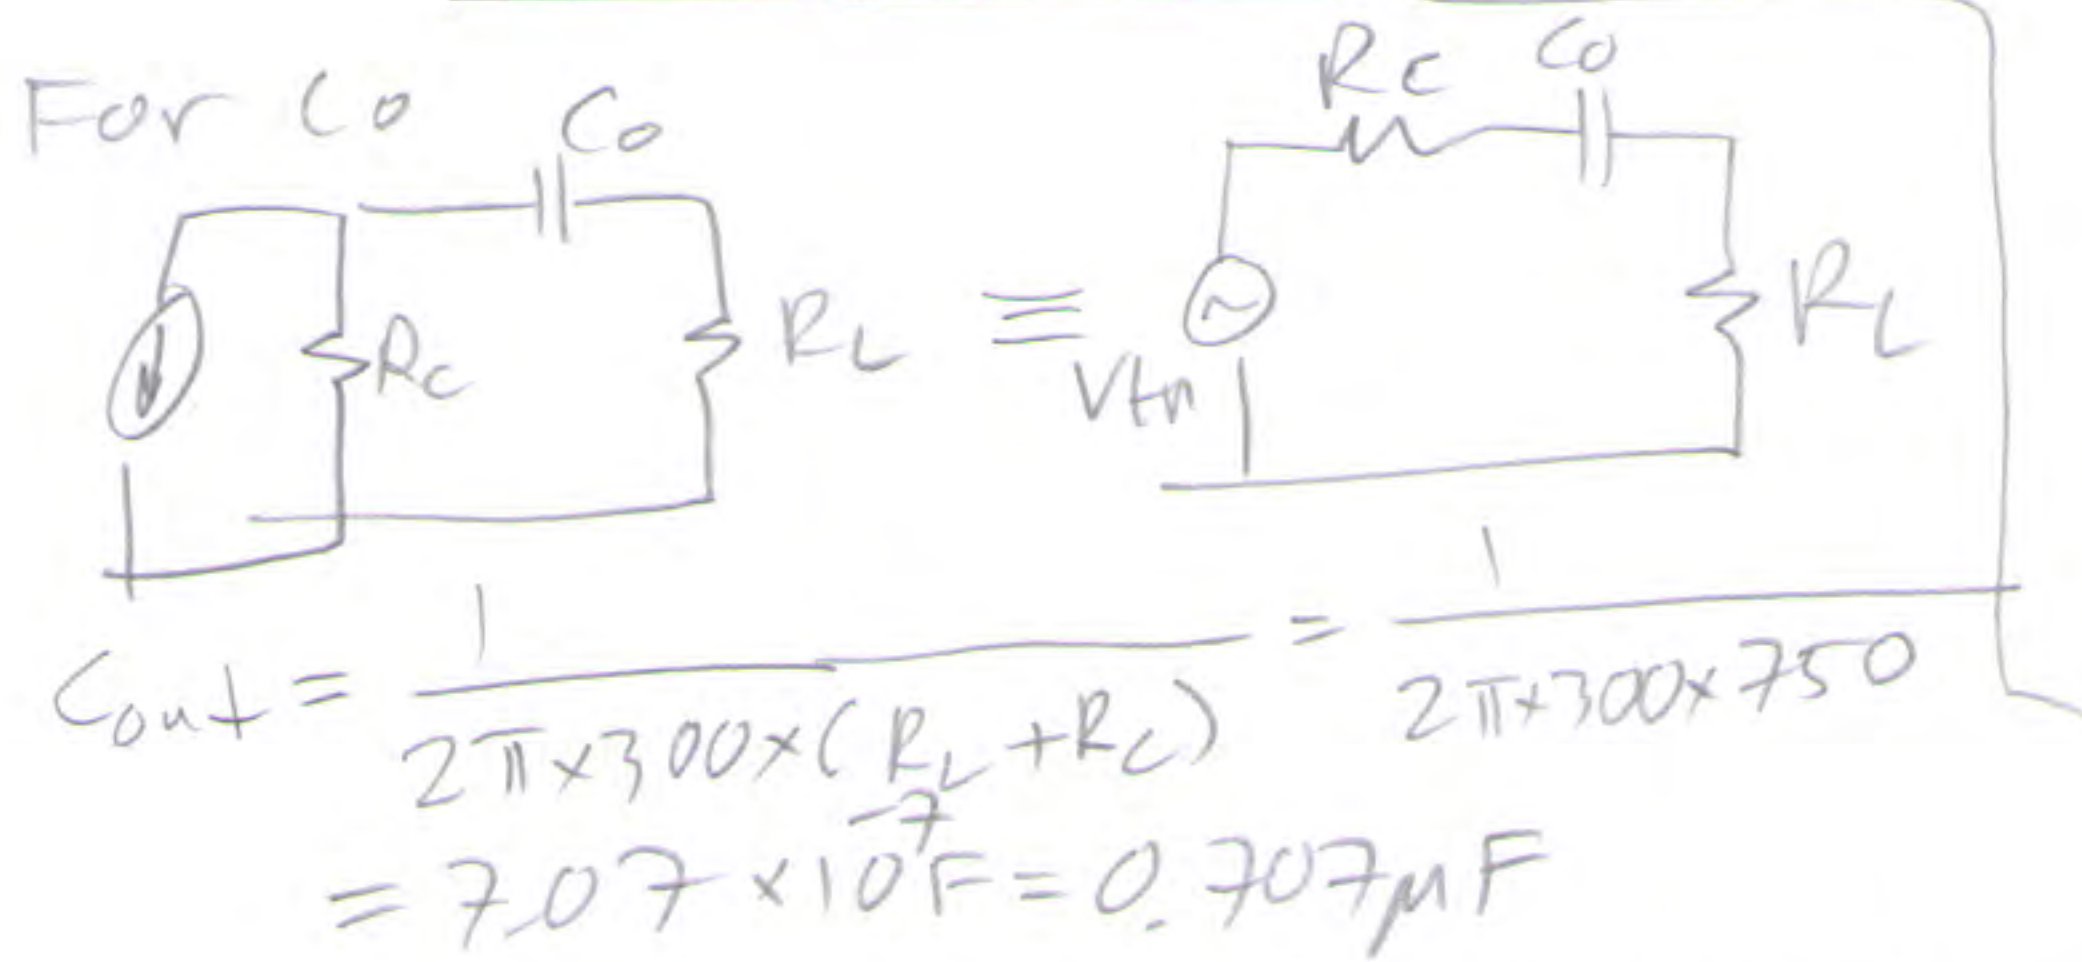 For Co
Co
Rc
RL
≡
Rc Co
Vth
RL
Cout = 1 / 2π×300×(RL+RC) = 1 / 2π×300×750
= 7.07 ×10^-7 F = 0.707μF